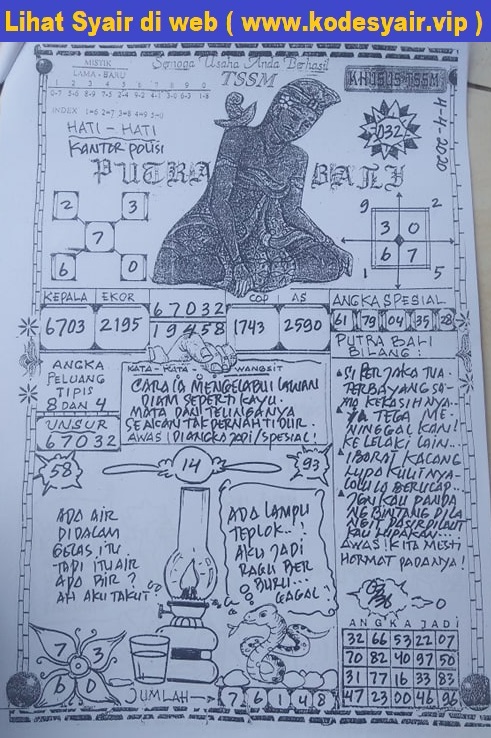 Lihat Syair di web ( www.kodesyair.vip )
Semoga Usaha Anda Berhasil
MISTIK
LAMA - BARU
TSSM
KHUSUS TSSM
1 2 3 4 5 6 7 8 9 0
INDEX 1=6 2=7 3=8 4=9 5=0
HATI - HATI
KANTOR POLISI
2032
4-4-2020
PUTRA BALI
2 3
7
6 0
9 2
3 0
6 7
1 5
KEPALA EKOR
6703 2195
67032
19458
COP AS
1743 2590
ANGKA SPESIAL
61 79 04 35 28
ANGKA
PELUANG
TIPIS
8 DAN 4
UNSUR
67032
KATA - KATA WANGSIT
CARA LA MENGELABUI LAWAN
DIAM SEPERTI KAYU.
MATA DAN TELINGANYA
SEAKAN TAK PERNAH TIDUR.
AWAS! DI ANGKA JADI/SPESIAL!
PUTRA BALI
BILANG:
SI PERJAKA TUA.
TERBAYANG SA-
MA KEKASIHNYA..
YA TEGA ME-
NINGGALKAN!
KE LELAKI LAIN...
IBARAT KACANG
LUPA KULITNYA.
LALU IA BERUCAP.
JGN KAU PANDA
NG BINTANG DI LA
NGIT PASIR DI LAUT
KAU LUPAKAN...
AWAS! KITA MESTI
HORMAT PADANYA!
58
14
93
ADA AIR
DI DALAM
GELAS ITU.
TADI ITU AIR
APA BIR?
AH AKU TAKUT!
ADA LAMPU
TEPLOK..!
AKU JADI
RAGU BER
BURU...
GAGAL!
0
ANGKA JADI
32 66 53 22 07
70 82 40 97 50
31 77 16 33 83
47 23 00 46 96
7 3
6 0
JUMLAH
7 6 1 4 8